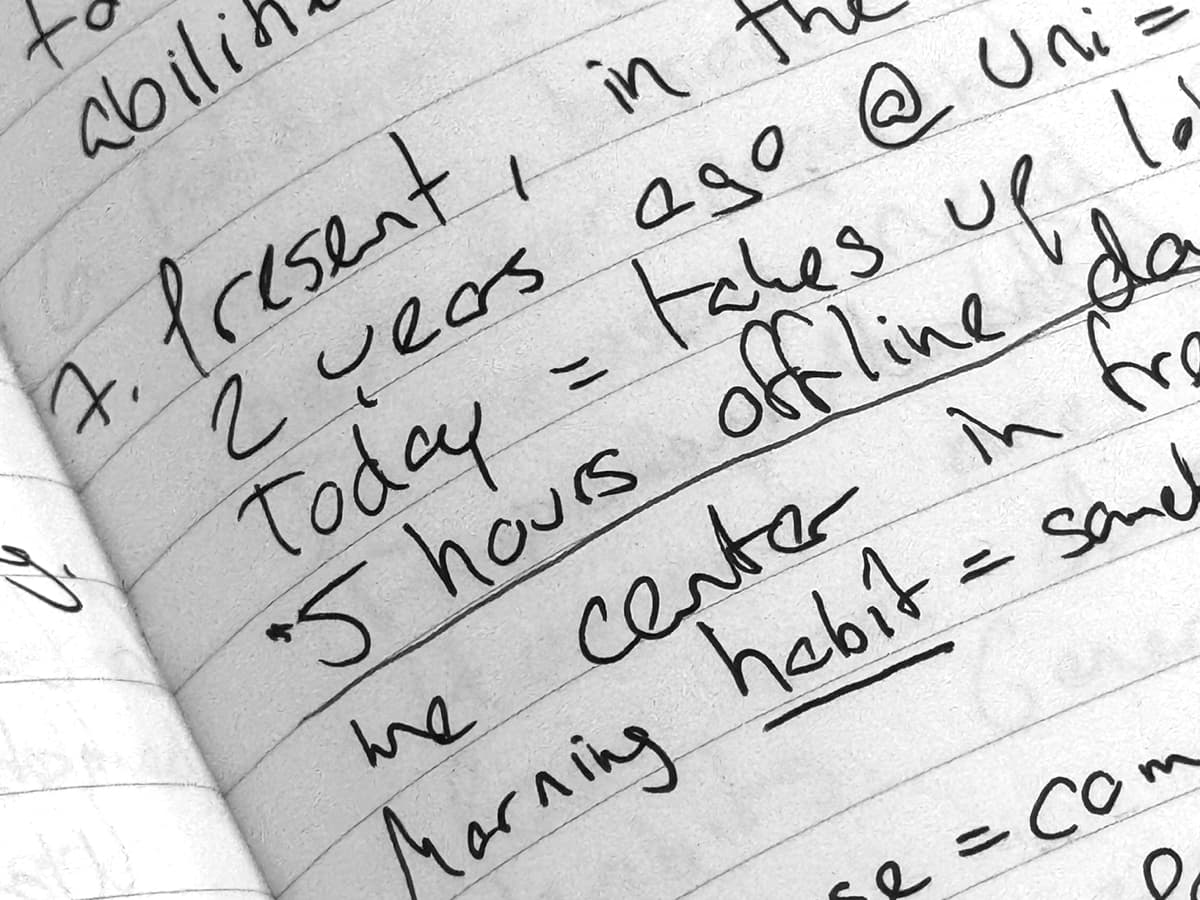 to
abilit
7. Present, in the
2 years ago @ uni =
Today = takes up lo
*5 hours offline da
we center in fre
Morning habit = some
se = com
y.